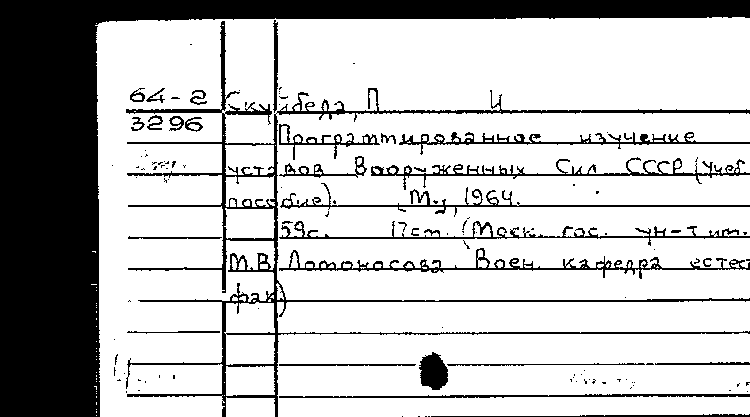 64-2 Скуйбеда, П И
3296 Программированное изучение
уставов Вооруженных Сил СССР (Учеб
пособие). [М.], 1964.
59с. 17см (Моск. гос. ун-т им.
М.В. Ломоносова. Воен. кафедра естест
фак)